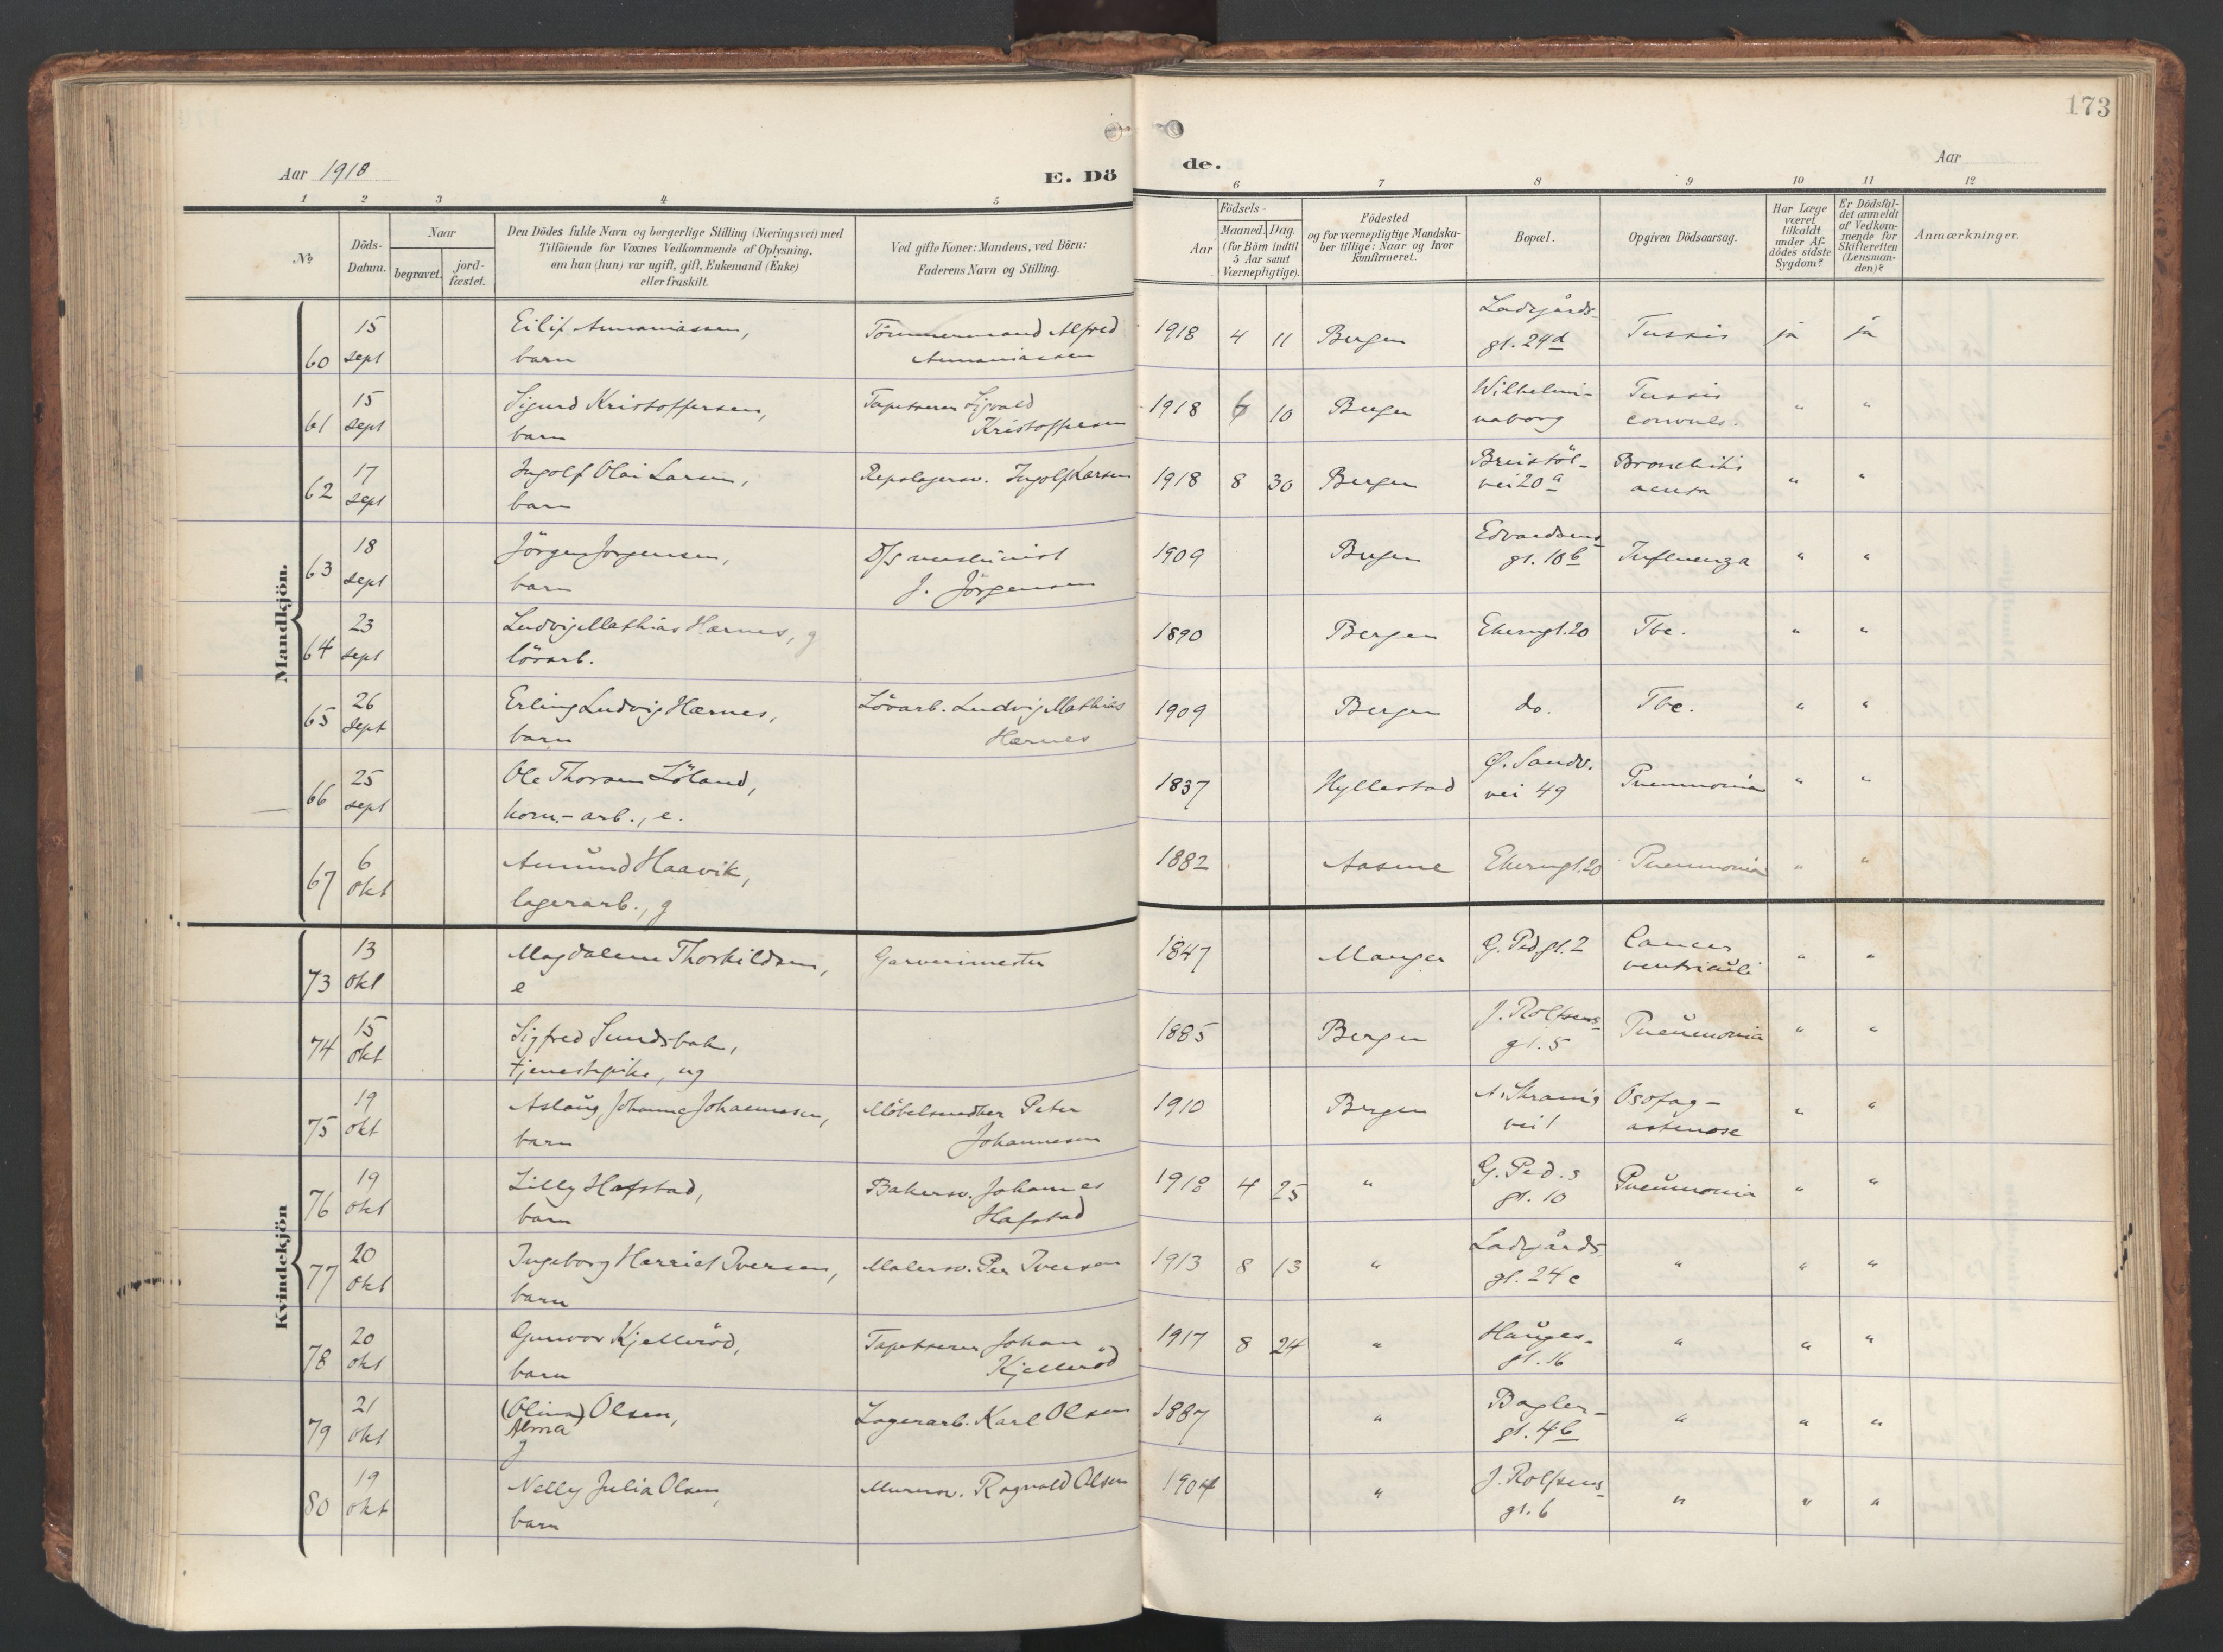 173
Aar 1918
E. Dö
de.
Aar
1 2 3 4 5 6 7 8 9 10 11 12
№
Döds-
Datum.
Naar
begravet.
jord-
fæstet.
Den Dödes fulde Navn og borgerlige Stilling (Næringsvei) med
Tilföiende for Voxnes Vedkommende af Oplysning,
om han (hun) var ugift, gift, Enkemand (Enke)
eller fraskilt.
Ved gifte Koner: Mandens, ved Börn:
Faderens Navn og Stilling.
Födsels-
Aar
Maaned. Dag.
(for Börn indtil
5 Aar samt
Værnepligtige).
Födested
og for værnepligtige Mandska-
ber tillige: Naar og hvor
konfirmeret.
Bopæl.
Opgiven Dödsaarsag.
Har Læge
været
tilkaldt
under Af-
dödes sidste
Sygdom?
Er Dödsfal-
det anmeldt
af Vedkom-
mende for
Skifteretten
(Lensman-
den)?
Anmærkninger.
Mandkjön.
60 15 sept Eilif Annaniassen, Tömmermand Alfred 1918 4 11 Bergen Ladegårds- gt. 24d Tussis ja ja
barn Annaniassen
61 15 sept Sigurd Kristoffersen, Tapetserer Kristoffersen 1918 6 10 Bergen Wilhelmi- Tussis " "
barn naborg convuls.
62 17 sept Ingolf Olai Larsen, Repslagersv. Ingolf Larsen 1918 8 30 Bergen vei 20a Bronchitis " "
barn acuta
63 18 sept Jörgen Jörgensen, D/S maskinist 1909 Bergen Edvardsens- Influenza " "
barn J. Jörgensen gt. 10b
64 23 sept Ludvig Mathias Hærnes, g 1890 Bergen Tbc. " "
lösarb.
65 26 sept Erling Ludvig Hærnes, Lösarb. Ludvig Mathias 1909 Bergen do. Tbc. " "
barn Hærnes
66 25 sept Ole Löland, 1837 Hyllestad Ø. Sandv. Pneumonia " "
kom.-arb., e. vei 49
67 6 okt Amund Haavik, 1882 Pneumonia " "
lagerarb., g
Kvindekjön
73 13 okt Magdalene Thorkildsen, Garverimester 1847 Manger G. Ped.gt. 2 Cancer " "
e ventriculi
74 15 okt Sigfred Sundsbak, 1885 Bergen J. Rolfsens- Pneumonia " "
tjenestepike, ug gt. 5
75 19 okt Aslaug Johanne Johannesen, Möbelsnedker Peter 1910 Bergen A. Skrams Osofag- " "
barn Johannesen vei 1 astenose
76 19 okt Lilly Hafstad, Bakersv. Johannes 1918 4 25 " G. Ped.s Pneumonia " "
barn Hafstad gt. 10
77 20 okt Ingeborg Harriet Iversen, Malersv. Per Iversen 1913 8 13 " Ladegårds- " " "
barn gt. 24c
78 20 okt Gunvor Kjelleröd, Tapetserer Johan 1917 8 24 " Hauges- " " "
barn Kjelleröd gt. 16
79 21 okt (Olina) Olsen, Lagerarb. Karl Olsen 1887 " Bagler- " " "
Alma gt. 4b
g
80 19 okt Nelly Julia Olsen, Murersv. Ragnvald Olsen 1904 " J. Rolfsens- " " "
barn gt. 6